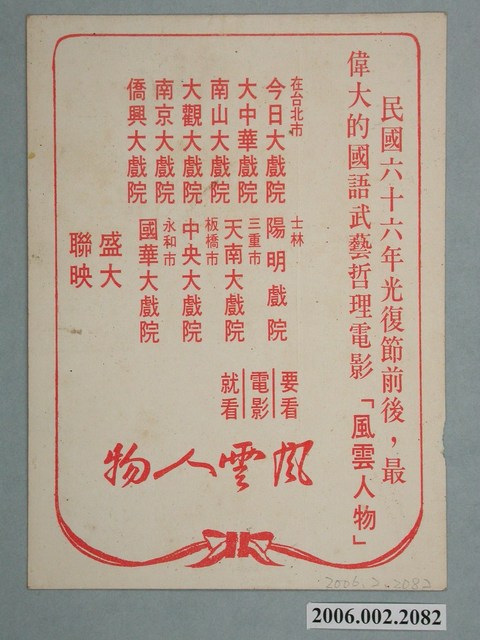 民國六十六年光復節前後，最
偉大的國語武藝哲理電影「風雲人物」
在台北市
今日大戲院
大中華戲院
南山大戲院
大觀大戲院
南京大戲院
僑興大戲院
士林
陽明戲院
三重市
天南大戲院
板橋市
中央大戲院
永和市
國華大戲院
盛大
聯映
要看
電影
就看
風雲人物
2006.2.2082
2006.002.2082